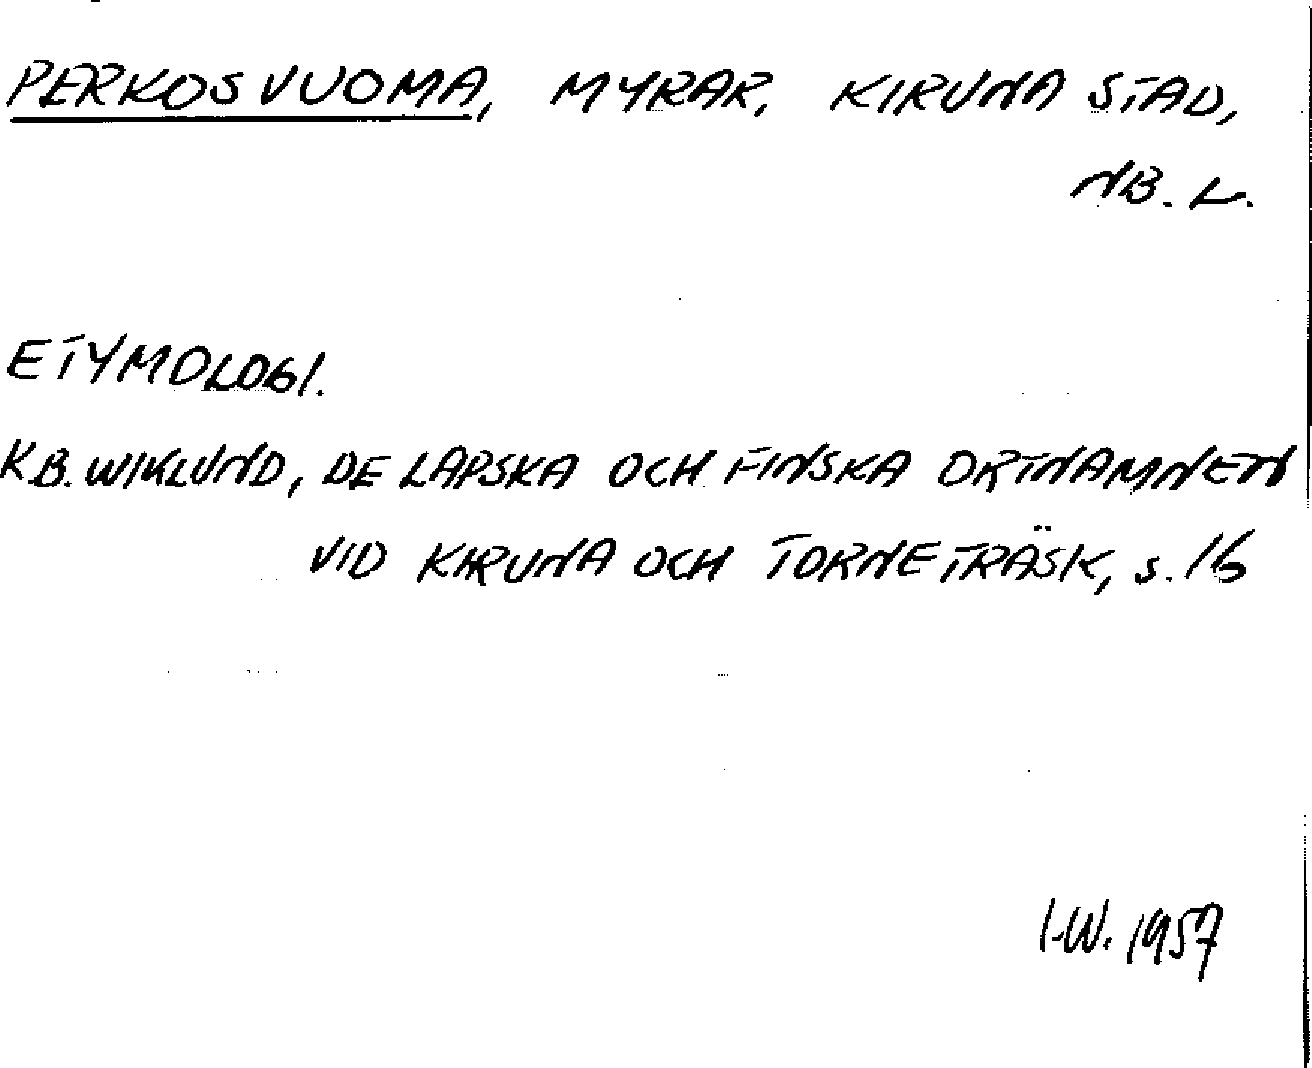 PERKOSVUOMA, MYRAR, KIRUNA STAD,
NB. L.
ETYMOLOGI.
K.B. WIKLUND, DE LAPSKA OCH FINSKA ORTNAMNEN
VID KIRUNA OCH TORNETRÄSK, s. 16
I.W. 1957